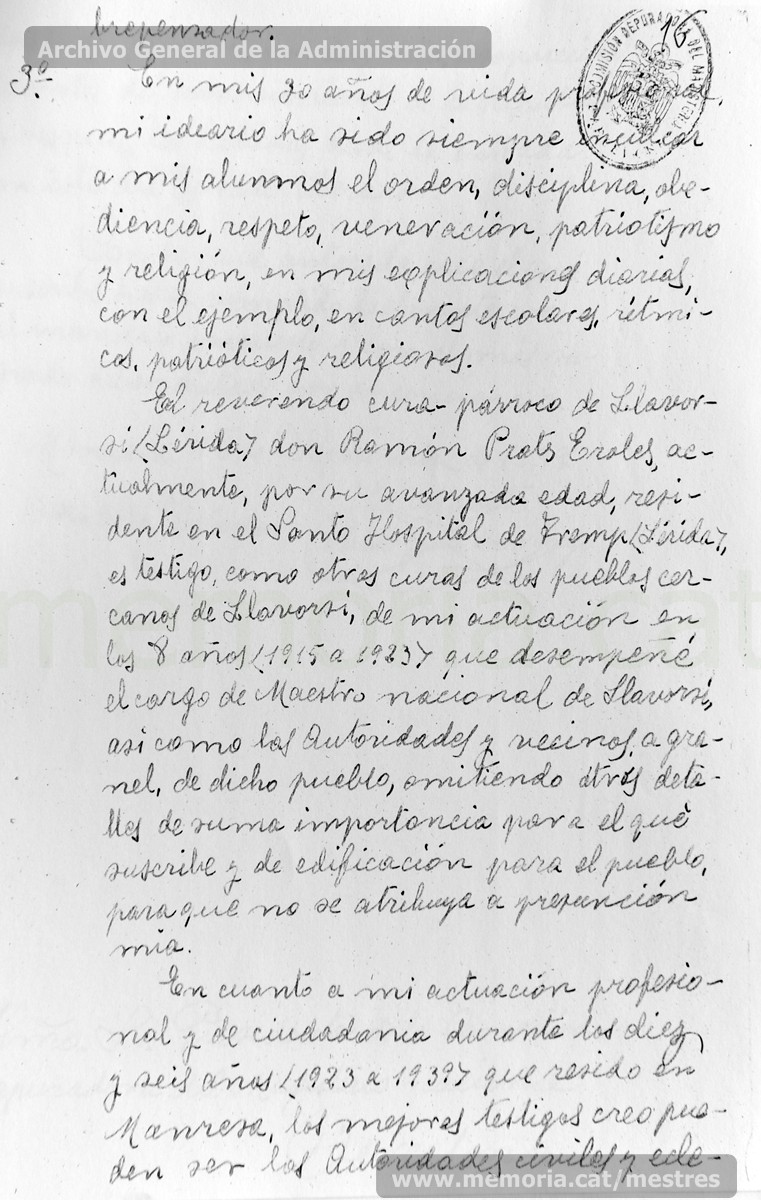 brepensador.
Archivo General de la Administración
16
3º. En mis 30 años de vida profesional,
mi ideario ha sido siempre inculcar
a mis alumnos el orden, disciplina, obe-
diencia, respeto, veneración, patriotismo
y religión, en mis explicaciones diarias,
con el ejemplo, en cantos escolares, rítmi-
cos, patrióticos y religiosos.
El reverendo cura-párroco de Llavor-
sí (Lérida) don Ramón Prats Eroles, ac-
tualmente, por su avanzada edad, resi-
dente en el Santo Hospital de Tremp (Lérida),
es testigo, como otros curas de los pueblos cer-
canos de Llavorsí, de mi actuación en
los 8 años (1915 a 1923) que desempeñé
el cargo de Maestro nacional de Llavorsí,
así como las Autoridades y vecinos, a gra-
nel, de dicho pueblo, omitiendo otros deta-
lles de suma importancia para el que
suscribe y de edificación para el pueblo,
para que no se atribuya a presunción
mía.
En cuanto a mi actuación profesio-
nal y de ciudadania durante los diez
y seis años (1923 a 1939) que resido en
Manresa, los mejores testigos creo pue-
den ser las Autoridades civiles y ecle-
www.memoria.cat/mestres